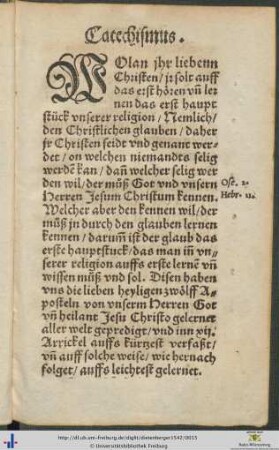 Catechismus.
WOlan jhr liebenn
Christen/ jr solt auff
das erst hören vñ ler
nen das erst haupt
stück vnserer religion/ Nemlich/
den Christlichen glauben/ daher
jr Christen seidt vnd genant wer-
det/ on welchen niemandts selig
werdē kan/ dañ welcher selig wer
den wil/ der můß Got vnd vnsern
Herren Jesum Christum kennen.
Ose. 2.
Hebr. 11.
Welcher aber den kennen wil/ der
můß jn durch den glauben lernen
kennen/ darum̃ ist der glaub das
erste hauptstuck/ das man im̃ vn-
serer religion auffs erste lernē vñ
wissen můß vnd sol. Disen haben
vns die lieben heyligen zwölff A-
posteln von vnserm Herren Got
vñ heilant Jesu Christo gelernet
aller welt gepredigt/ vnd inn xij.
Arrickel auffs kürtzest verfaßt/
vñ auff solche weise/ wie hernach
folget/ auffs leichtest gelernet.
http://dl.ub.uni-freiburg.de/diglit/dietenberger1542/0015
© Universitätsbibliothek Freiburg